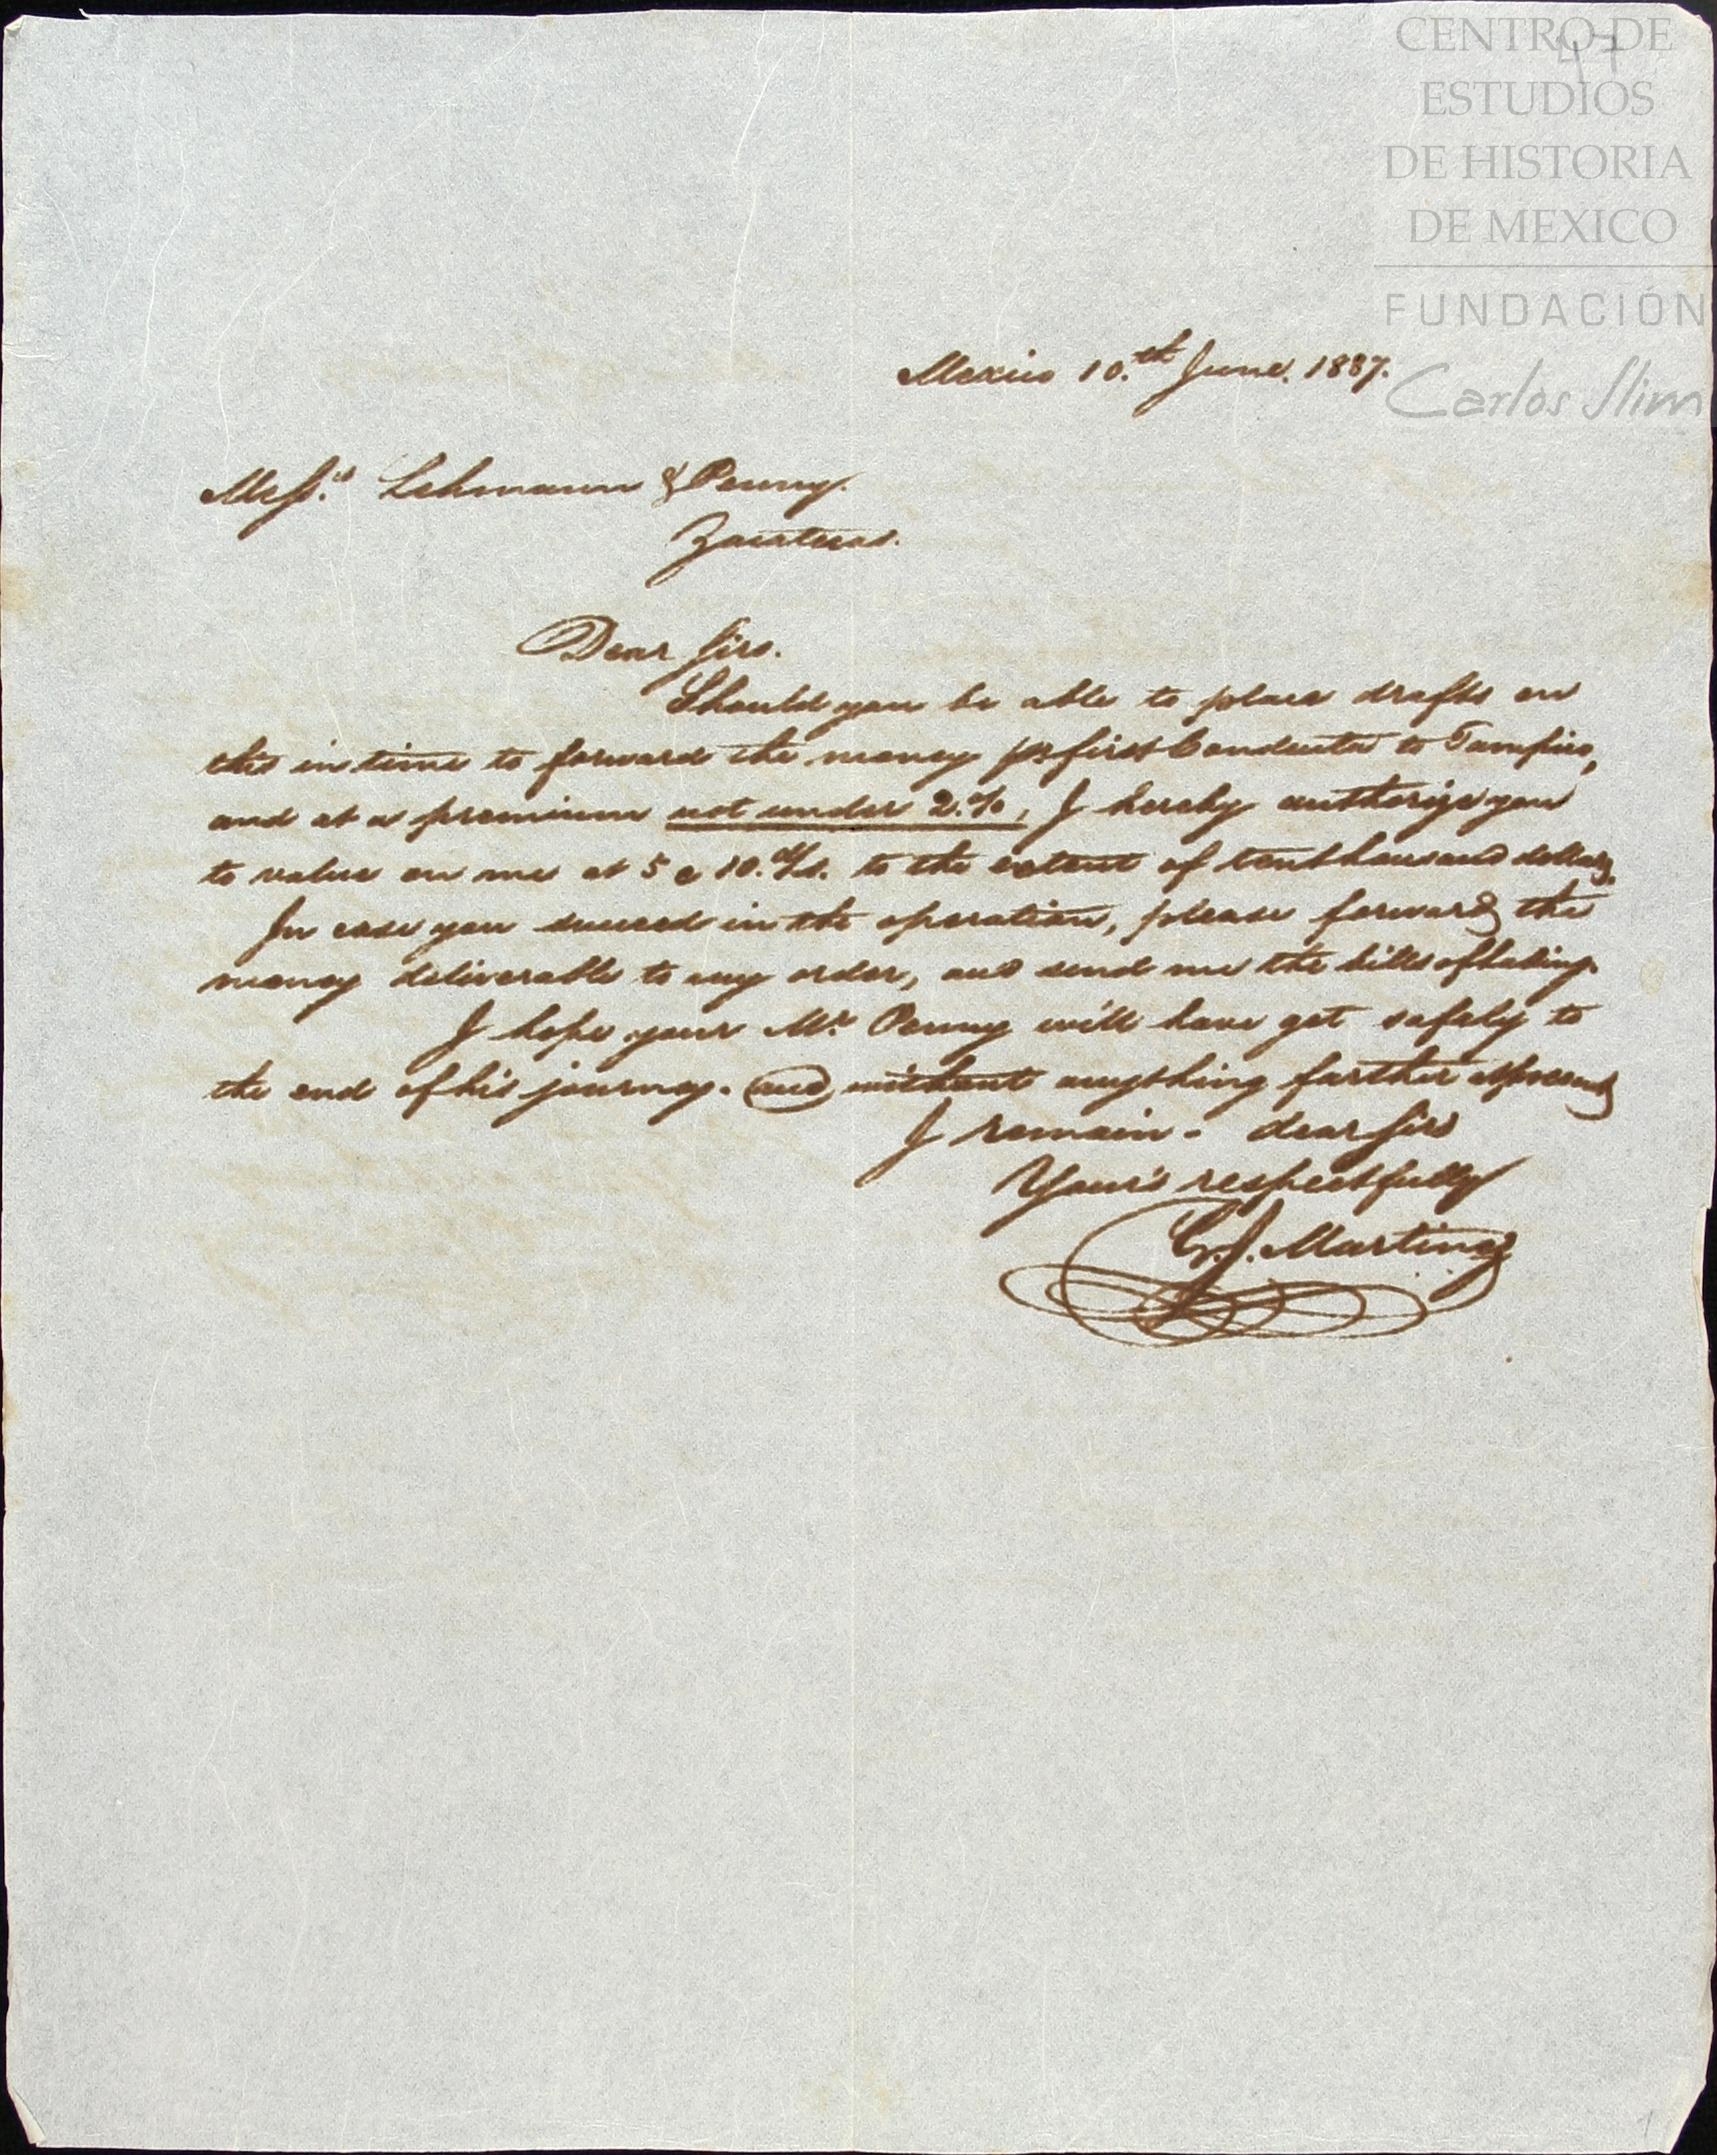 47
CENTRO DE
ESTUDIOS
DE HISTORIA
DE MEXICO
FUNDACIÓN
Carlos Slim
Mexico 10.th June. 1837.
Mess.rs Lehmann & Penny.
Zacatecas.
Dear Sirs.
Should you be able to place drafts on
this in time to forward the money pr first Conducta to Tampico,
and at a premium not under 2.%, I hereby authorize you
to value on me at 5 a 10. d/s. to the extent of tenthousand dollars.
In case you succeed in the operation, please forward the
money deliverable to my order, and send me the bills of lading.
I hope your Mr. Penny will have got safely to
the end of his journey. and without anything farther at present
I remain. dear Sirs
Your's respectfully
G. J. Martinez
1